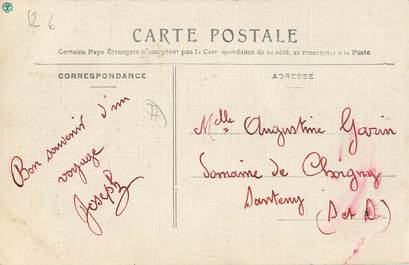 12 6
CARTE POSTALE
Certains Pays Étrangers n'acceptent pas la Correspondance de ce côté, se renseigner à la Poste
CORRESPONDANCE
ADRESSE
Bon souvenir d'un
voyage
Joseph
Melle Augustine Garin
Domaine de Choigny
Santeny
(S et O)